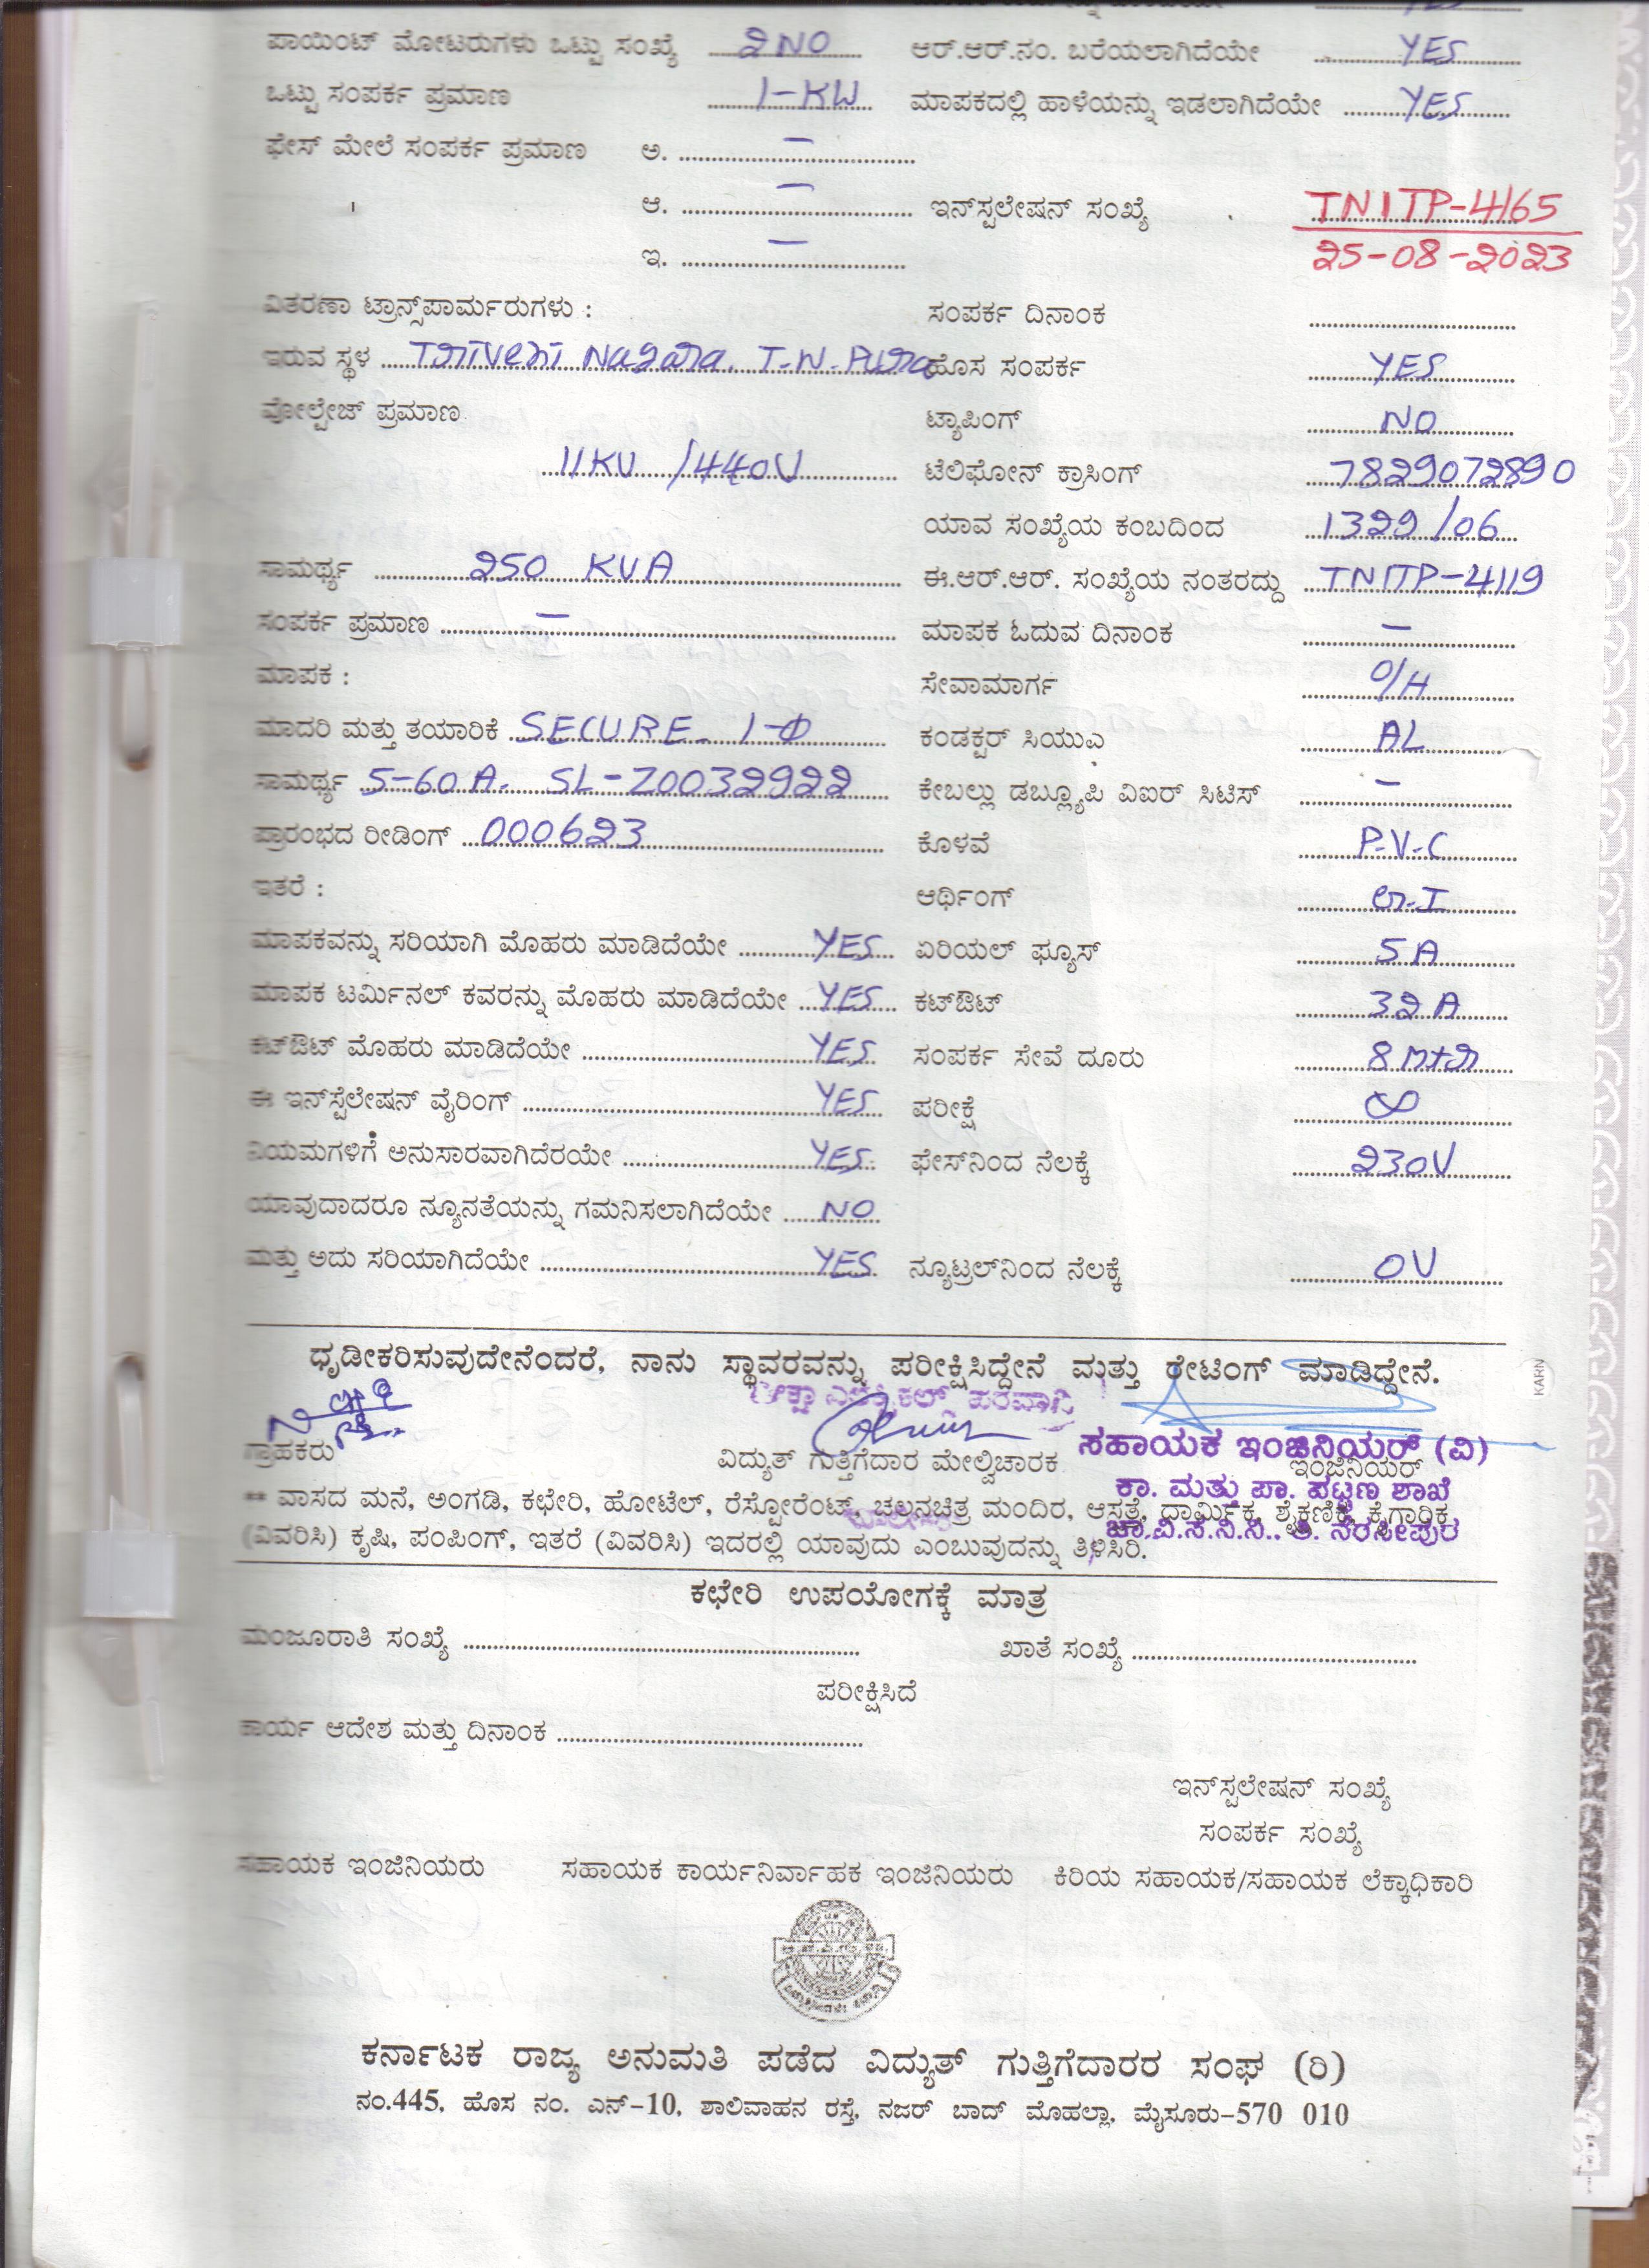 ಪಾಯಿಂಟ್ ಮೋಟರುಗಳು ಒಟ್ಟು ಸಂಖ್ಯೆ 2 NO ಆರ್.ಆರ್.ನಂ. ಬರೆಯಲಾಗಿದೆಯೇ YES
ಒಟ್ಟು ಸಂಪರ್ಕ ಪ್ರಮಾಣ 1-KW ಮಾಪಕದಲ್ಲಿ ಹಾಳೆಯನ್ನು ಇಡಲಾಗಿದೆಯೇ YES
ಫೇಸ್ ಮೇಲೆ ಸಂಪರ್ಕ ಪ್ರಮಾಣ ಅ. –
ಆ. – ಇನ್‌ಸ್ಟಲೇಷನ್ ಸಂಖ್ಯೆ TNITP-4165
ಇ. – 25-08-2023
ವಿತರಣಾ ಟ್ರಾನ್ಸ್‌ಪಾರ್ಮರುಗಳು : ಸಂಪರ್ಕ ದಿನಾಂಕ
ಇರುವ ಸ್ಥಳ Triveni Nagara. T.N.Pura ಹೊಸ ಸಂಪರ್ಕ YES
ವೋಲ್ಟೇಜ್ ಪ್ರಮಾಣ ಟ್ಯಾಪಿಂಗ್ NO
11KV /440V ಟೆಲಿಫೋನ್ ಕ್ರಾಸಿಂಗ್ 7829072890
ಯಾವ ಸಂಖ್ಯೆಯ ಕಂಬದಿಂದ 1322/06
ಸಾಮರ್ಥ್ಯ 250 KVA ಈ.ಆರ್.ಆರ್. ಸಂಖ್ಯೆಯ ನಂತರದ್ದು TNITP-4119
ಸಂಪರ್ಕ ಪ್ರಮಾಣ – ಮಾಪಕ ಓದುವ ದಿನಾಂಕ –
ಮಾಪಕ : ಸೇವಾಮಾರ್ಗ O/H
ಮಾದರಿ ಮತ್ತು ತಯಾರಿಕೆ SECURE. 1-Φ ಕಂಡಕ್ಟರ್ ಸಿಯುಎ AL
ಸಾಮರ್ಥ್ಯ 5-60A. SL-Z0032922 ಕೇಬಲ್ಲು ಡಬ್ಲ್ಯೂಪಿ ವಿಐರ್ ಸಿಟಿಸ್ –
ಪ್ರಾರಂಭದ ರೀಡಿಂಗ್ 000623 ಕೊಳವೆ P.V.C
ಇತರೆ : ಆರ್ಥಿಂಗ್
ಮಾಪಕವನ್ನು ಸರಿಯಾಗಿ ಮೊಹರು ಮಾಡಿದೆಯೇ YES ಏರಿಯಲ್ ಫ್ಯೂಸ್ 5A
ಮಾಪಕ ಟರ್ಮಿನಲ್ ಕವರನ್ನು ಮೊಹರು ಮಾಡಿದೆಯೇ YES ಕಟ್‌ಔಟ್ 32 A
ಕಟ್‌ಔಟ್ ಮೊಹರು ಮಾಡಿದೆಯೇ YES ಸಂಪರ್ಕ ಸೇವೆ ದೂರು 8 mtr
ಈ ಇನ್‌ಸ್ಟೆಲೇಷನ್ ವೈರಿಂಗ್ YES ಪರೀಕ್ಷೆ ∞
ನಿಯಮಗಳಿಗೆ ಅನುಸಾರವಾಗಿದೆರಯೇ YES ಫೇಸ್‌ನಿಂದ ನೆಲಕ್ಕೆ 230V
ಯಾವುದಾದರೂ ನ್ಯೂನತೆಯನ್ನು ಗಮನಿಸಲಾಗಿದೆಯೇ NO
ಮತ್ತು ಅದು ಸರಿಯಾಗಿದೆಯೇ YES ನ್ಯೂಟ್ರಲ್‌ನಿಂದ ನೆಲಕ್ಕೆ 0V
ಧೃಡೀಕರಿಸುವುದೇನೆಂದರೆ, ನಾನು ಸ್ಥಾವರವನ್ನು ಪರೀಕ್ಷಿಸಿದ್ದೇನೆ ಮತ್ತು ರೇಟಿಂಗ್ ಮಾಡಿದ್ದೇನೆ.
ಸಹಾಯಕ ಇಂಜಿನಿಯರ್ (ವಿ)
ಗ್ರಾಹಕರು ವಿದ್ಯುತ್ ಗುತ್ತಿಗೆದಾರ ಮೇಲ್ವಿಚಾರಕ ಇಂಜಿನಿಯರ್
ಕಾ. ಮತ್ತು ಪಾ. ಪಟ್ಟಣ ಶಾಖೆ
** ವಾಸದ ಮನೆ, ಅಂಗಡಿ, ಕಛೇರಿ, ಹೋಟೆಲ್, ರೆಸ್ಟೋರೆಂಟ್, ಚಲನಚಿತ್ರ ಮಂದಿರ, ಆಸ್ಪತ್ರೆ, ಧಾರ್ಮಿಕ, ಶೈಕ್ಷಣಿಕ, ಕೈಗಾರಿಕ
ಚಾ.ವಿ.ಸ.ನಿ.ನಿ.. ತಿ. ನರಸೀಪುರ
(ವಿವರಿಸಿ) ಕೃಷಿ, ಪಂಪಿಂಗ್, ಇತರೆ (ವಿವರಿಸಿ) ಇದರಲ್ಲಿ ಯಾವುದು ಎಂಬುವುದನ್ನು ತಿಳಿಸಿರಿ.
ಕಛೇರಿ ಉಪಯೋಗಕ್ಕೆ ಮಾತ್ರ
ಮಂಜೂರಾತಿ ಸಂಖ್ಯೆ ಖಾತೆ ಸಂಖ್ಯೆ
ಪರೀಕ್ಷಿಸಿದೆ
ಕಾರ್ಯ ಆದೇಶ ಮತ್ತು ದಿನಾಂಕ
ಇನ್‌ಸ್ಟಲೇಷನ್ ಸಂಖ್ಯೆ
ಸಂಪರ್ಕ ಸಂಖ್ಯೆ
ಸಹಾಯಕ ಇಂಜಿನಿಯರು ಸಹಾಯಕ ಕಾರ್ಯನಿರ್ವಾಹಕ ಇಂಜಿನಿಯರು ಕಿರಿಯ ಸಹಾಯಕ/ಸಹಾಯಕ ಲೆಕ್ಕಾಧಿಕಾರಿ
ಕರ್ನಾಟಕ ರಾಜ್ಯ ಅನುಮತಿ ಪಡೆದ ವಿದ್ಯುತ್ ಗುತ್ತಿಗೆದಾರರ ಸಂಘ (ರಿ)
ನಂ.445, ಹೊಸ ನಂ. ಎನ್-10, ಶಾಲಿವಾಹನ ರಸ್ತೆ, ನಜರ್ ಬಾದ್ ಮೊಹಲ್ಲಾ, ಮೈಸೂರು-570 010
KARN